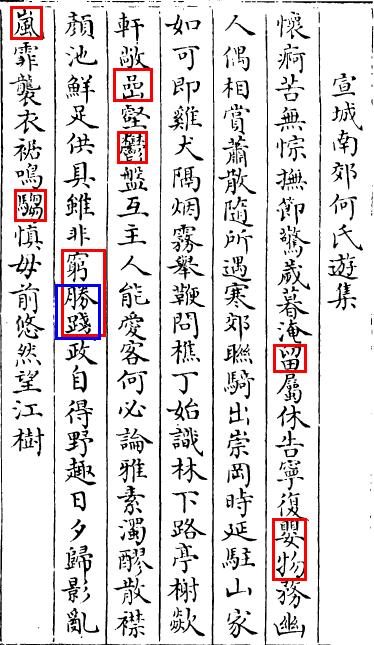 宣城南郊何氏遊集
懷痾苦無悰撫節驚歲暮淹留屬休告寧復嬰物務幽
人偶相賞蕭散隨所遇寒郊聯騎出崇岡時延駐山家
如可即雞犬隔烟霧舉鞭問樵丁始識林下路亭榭歘
軒敞嵒壑鬱盤互主人能愛客何必論雅素濁醪散襟
顏池鮮足供具雖非窮勝踐政自得野趣日夕歸影亂
嵐霏襲衣裾鳴騶慎毋前悠然望江樹